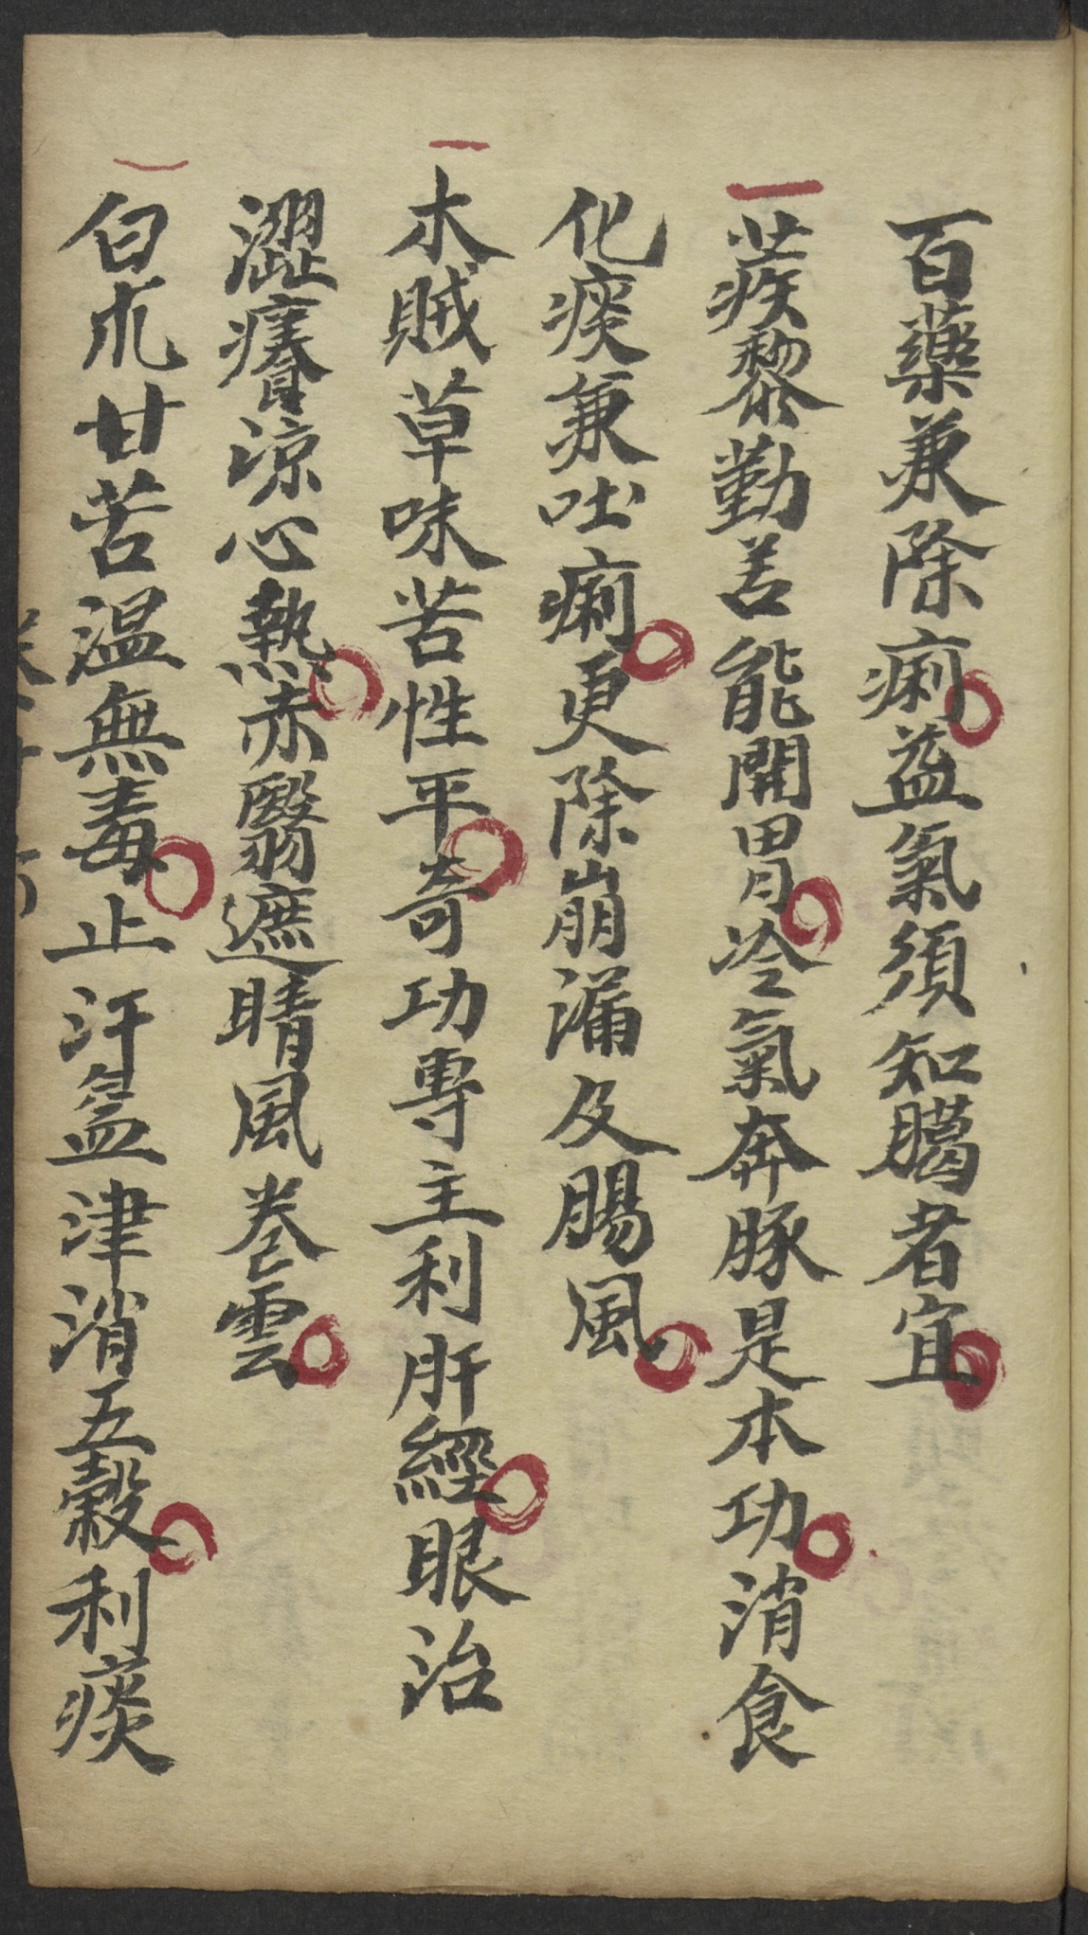 百藥兼除痢益氣須知臈者宜
蒺藜勤善能開胃冷氣奔豚是本功消食
化痰兼吐痢更除崩漏及腸風
木賊草味苦性平奇功專主利肝經眼治
澀癢涼心熱赤翳遮睛風卷雲
白朮甘苦温無毒止汗益津消五穀利痰